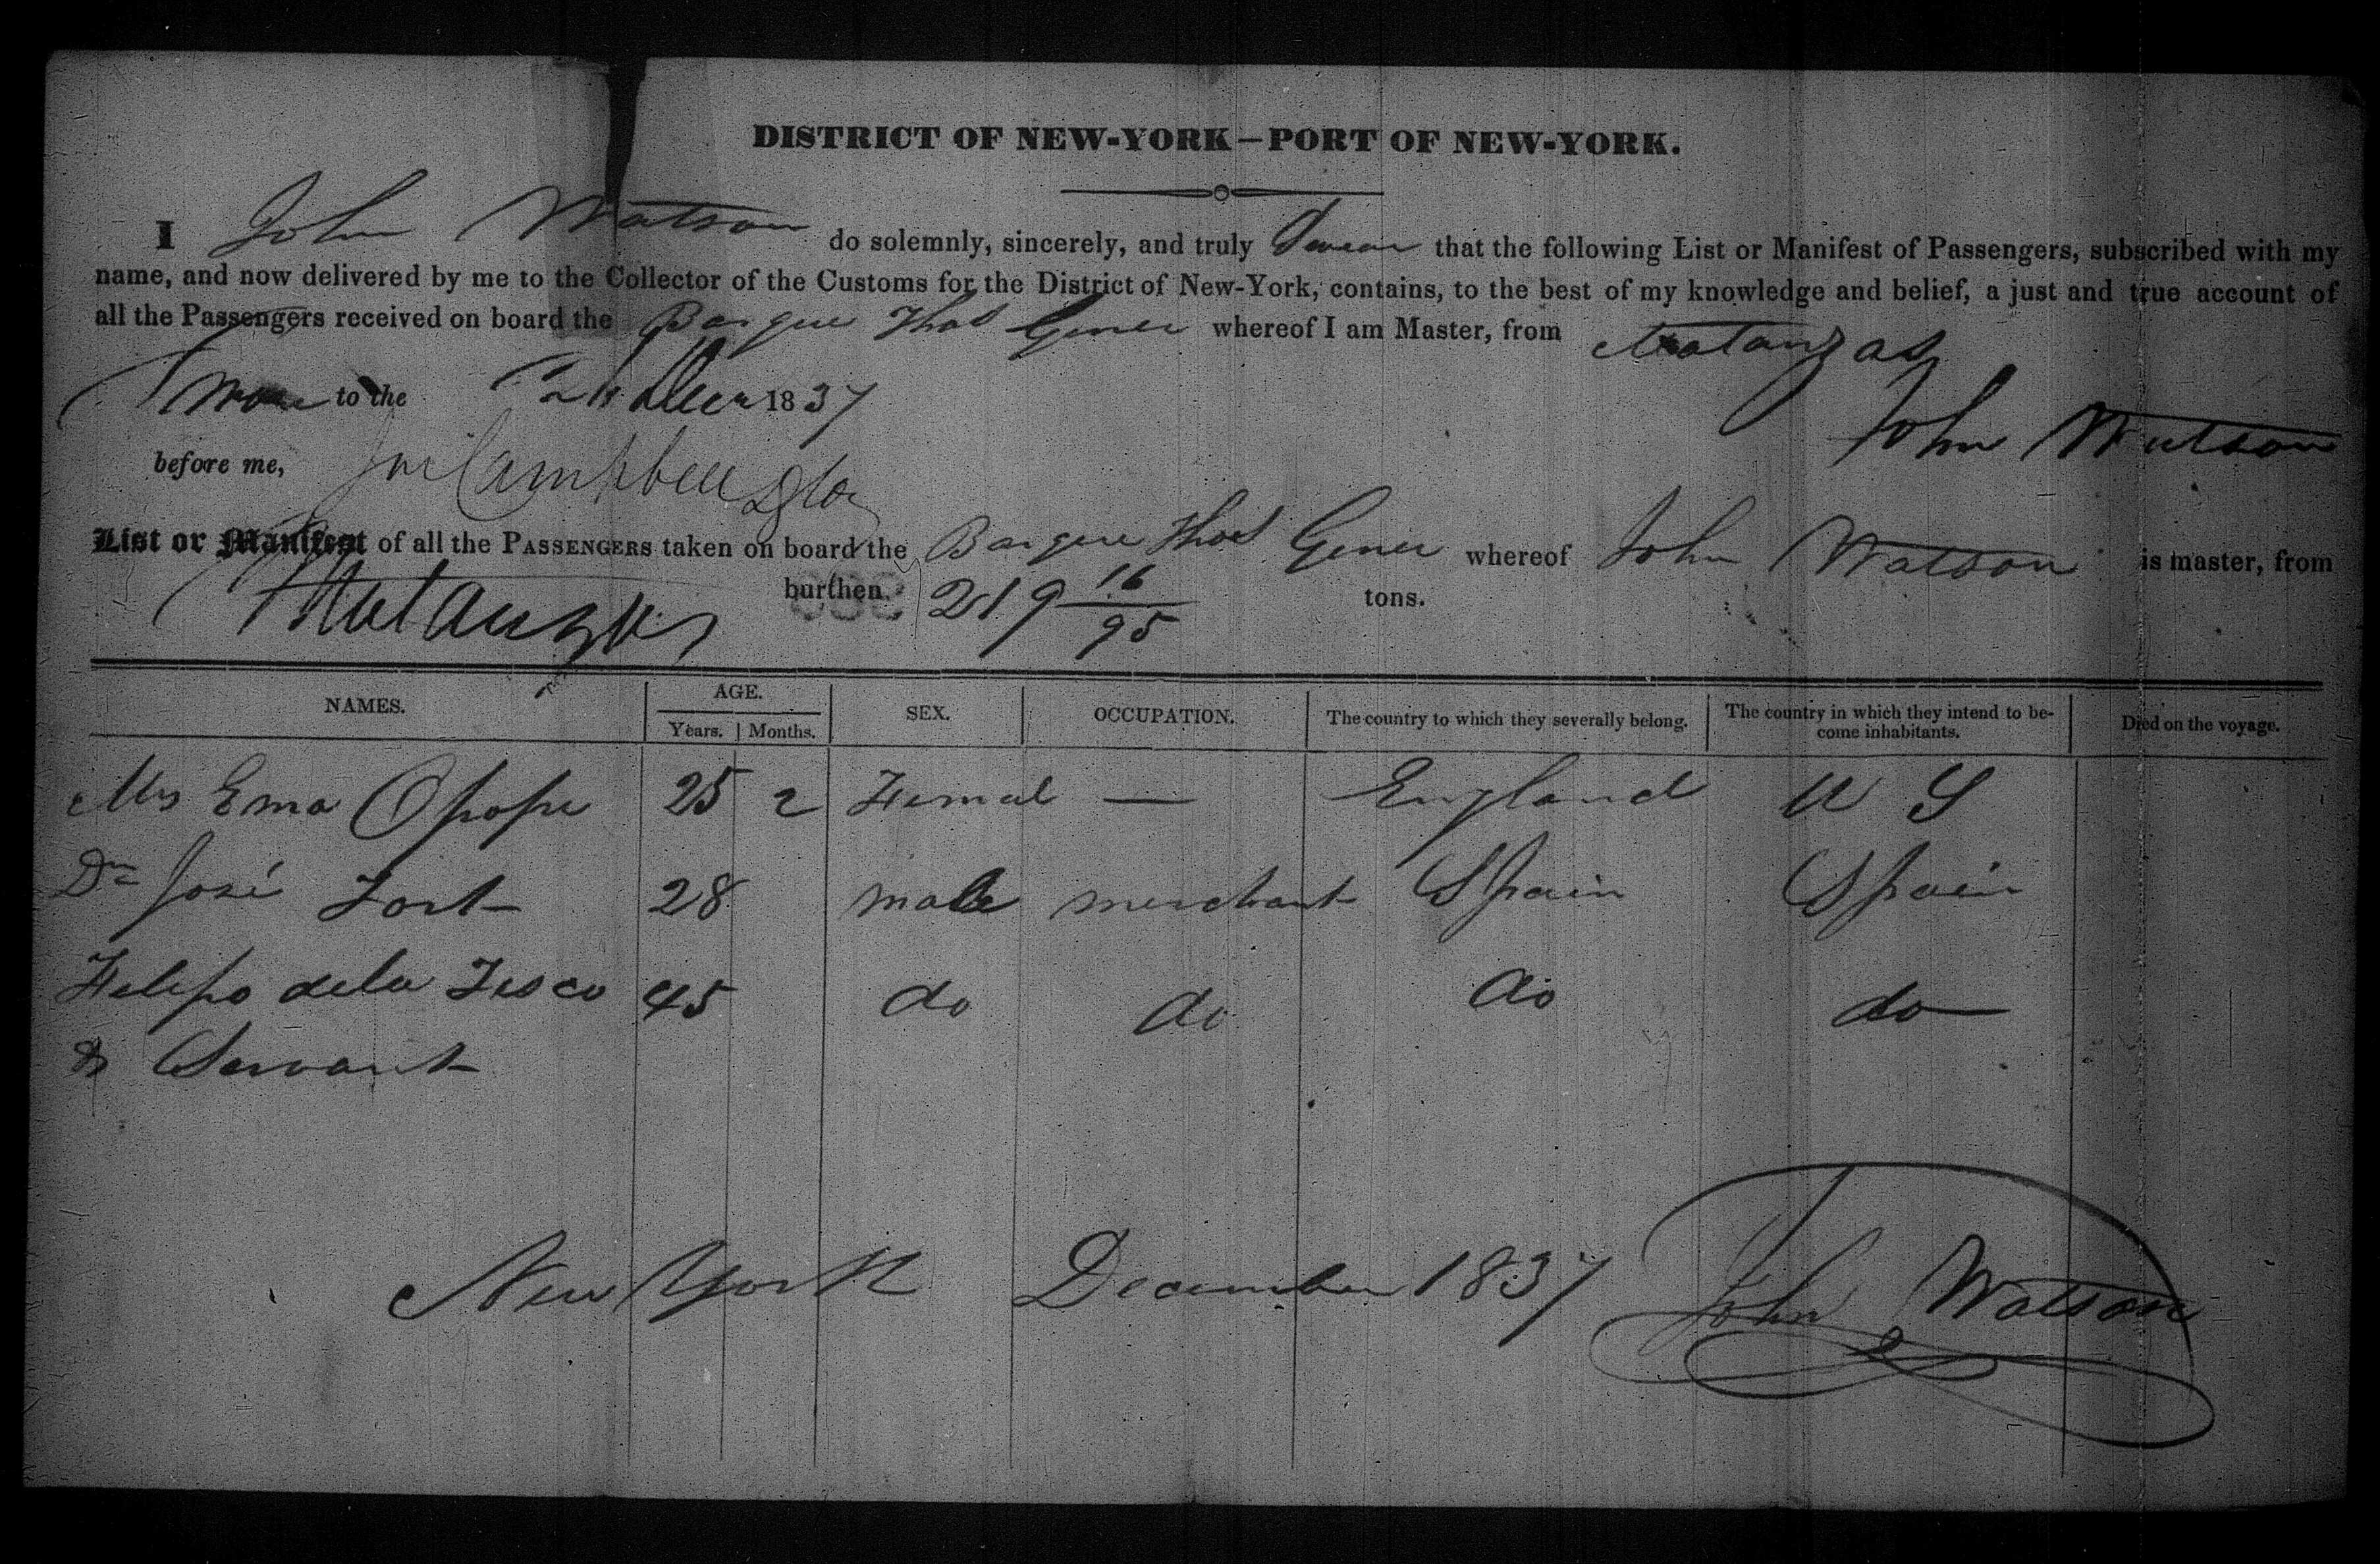 DISTRICT OF NEW-YORK—PORT OF NEW-YORK.
I John Watson do solemnly, sincerely, and truly Swear that the following List or Manifest of Passengers, subscribed with my
name, and now delivered by me to the Collector of the Customs for the District of New-York, contains, to the best of my knowledge and belief, a just and true account of
all the Passengers received on board the Barque Thos Gener whereof I am Master, from Matanzas
Sworn to the Decr 1837
John Watson
before me, Campbell
List or Manifest of all the PASSENGERS taken on board the Barque Thos Gener whereof John Watson is master, from
Matanzas burthen 219 16/95 tons.
NAMES. AGE. SEX. OCCUPATION. The country to which they severally belong. The country in which they intend to be- Died on the voyage.
Years. Months. come inhabitants.
Mrs Ema Pope 25 2 Femal — England U S
Dn José Fort 28 male merchant Spain Spain
Felipo dela 45 do do do do
& Servant
New York December 1837 John Watson